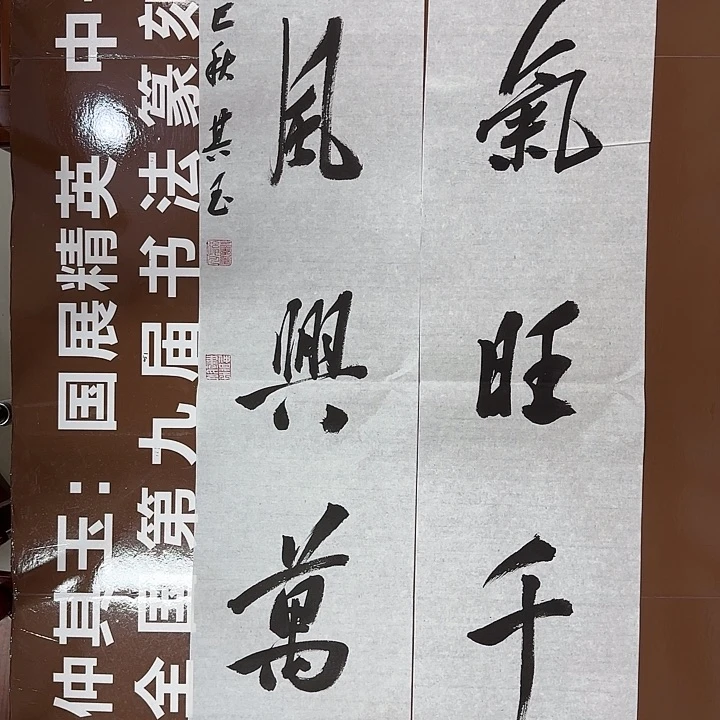 氣旺千
風興萬
巳秋 其玉
仲其玉：国展精英 中
全国第九届书法篆刻